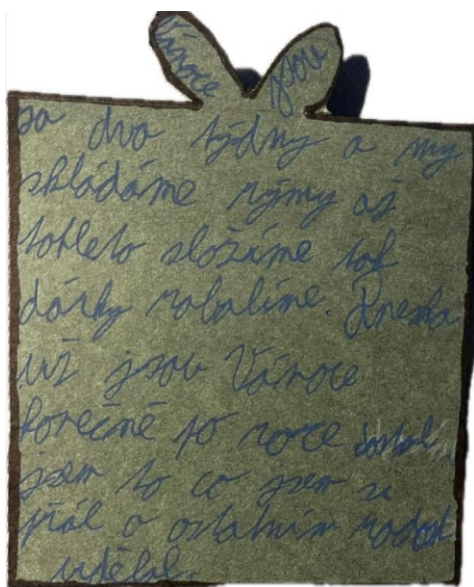 Vánoce jsou
za dva týdny a my
skládáme rýmy až
tohleto složíme tak
dárky zabalíme. Dneska
už jsou Vánoce
konečně po roce dostal
jsem to co jsem si
přál a ostatním radost
udělal.